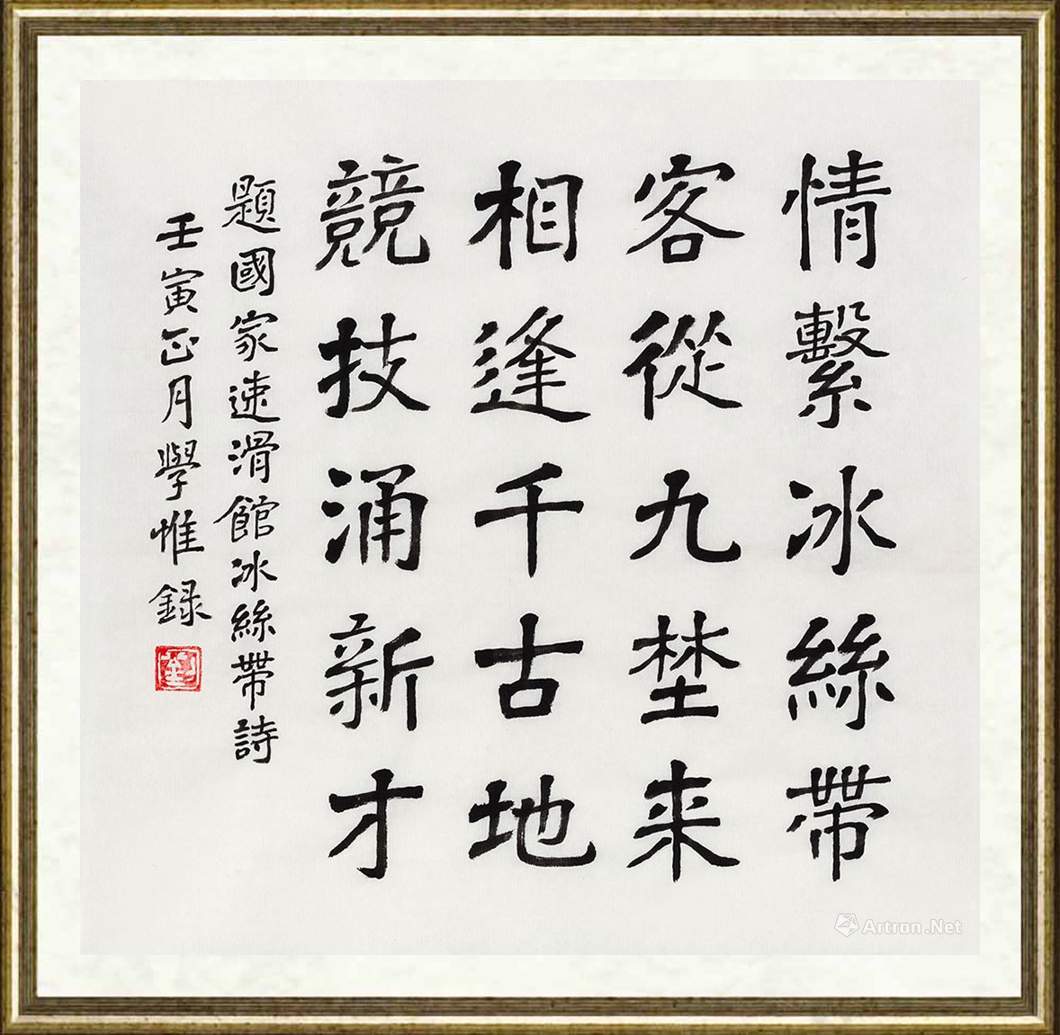 情繫冰絲帶
客從九埜来
相逢千古地
競技涌新才
題國家速滑館冰絲帶詩
壬寅正月學惟録
Artron.Net